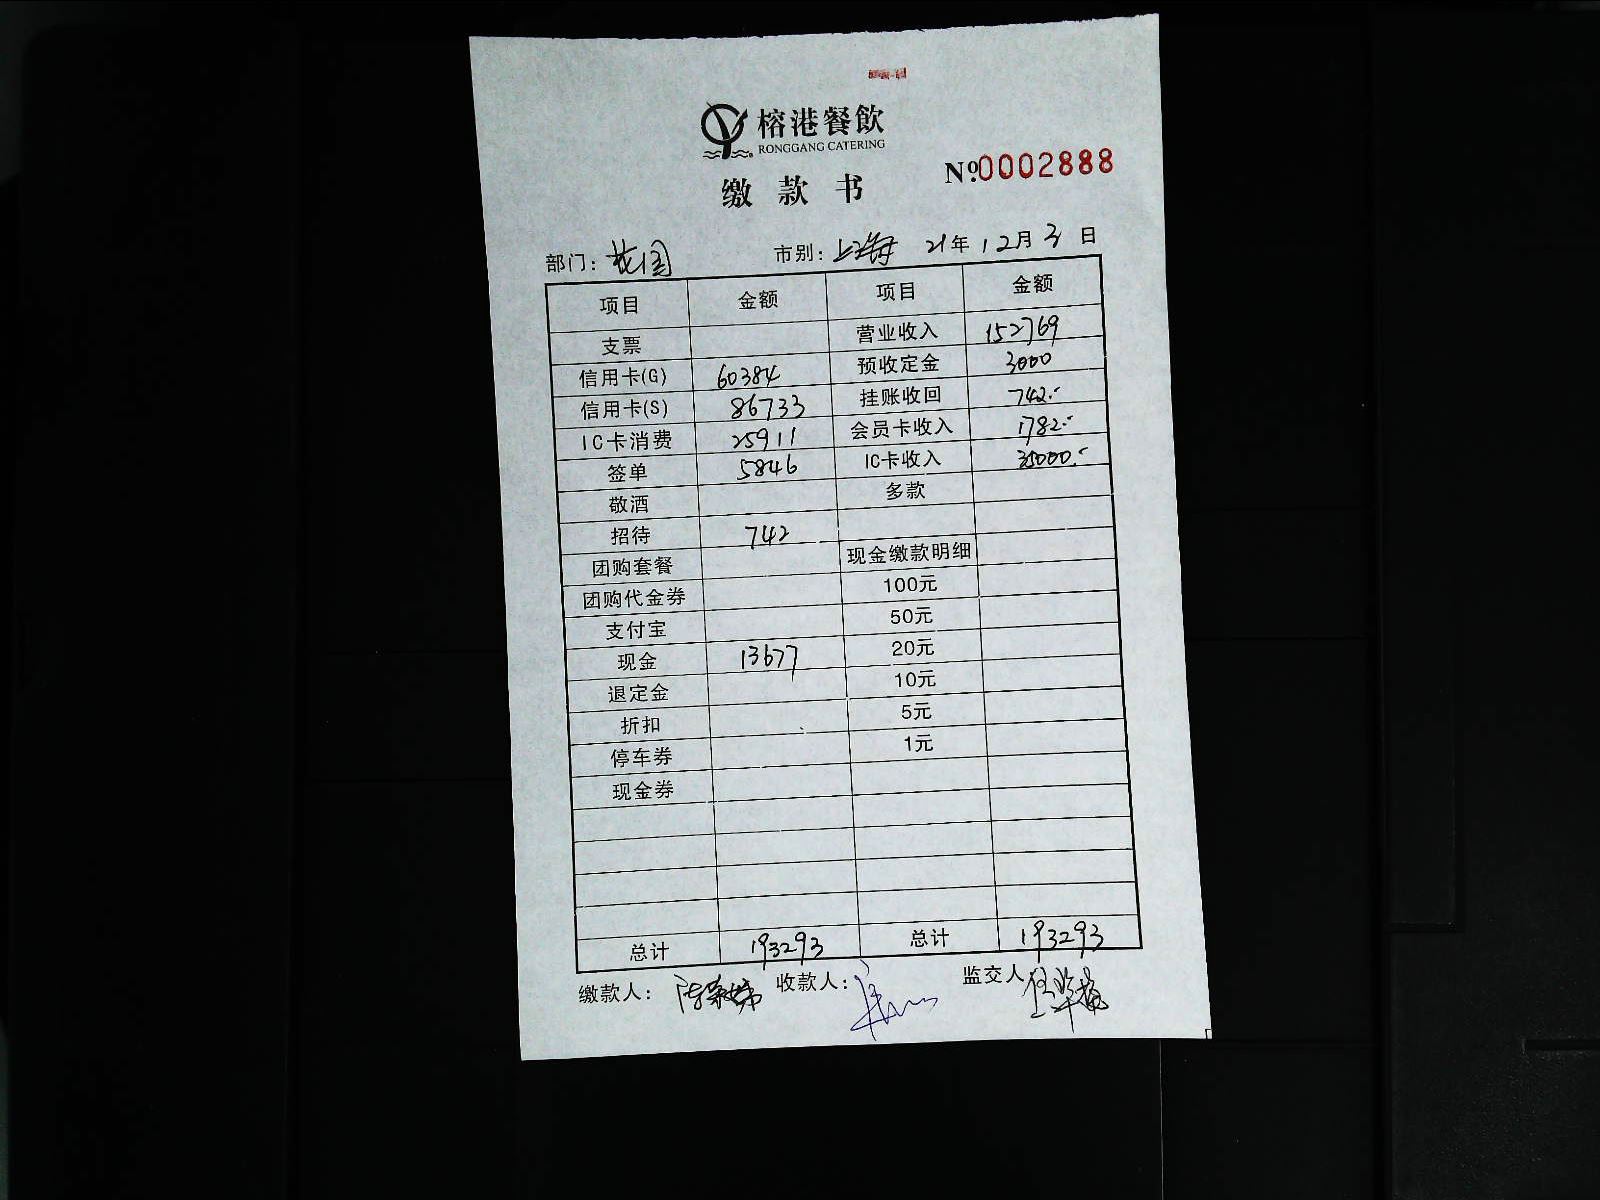 榕港餐飲
RONGGANG CATERING
缴款书
Nº0002888
部门: 花园 市别: 上海 21年12月3日
项目 金额 项目 金额
支票 营业收入 152769
信用卡(G) 60384 预收定金 3000
信用卡(S) 86733 挂账收回 742.-
IC卡消费 25911 会员卡收入 1782.-
签单 5846 IC卡收入 35000.-
敬酒 多款
招待 742
团购套餐 现金缴款明细
团购代金券 100元
支付宝 50元
现金 13677 20元
退定金 10元
折扣 5元
停车券 1元
现金券
总计 193293 总计 193293
缴款人: 收款人: 监交人